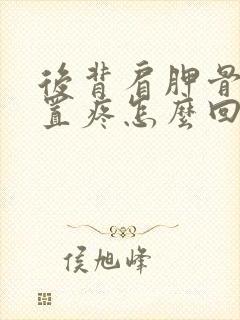 後背肩胛骨
置疼怎麼回
侯旭峰